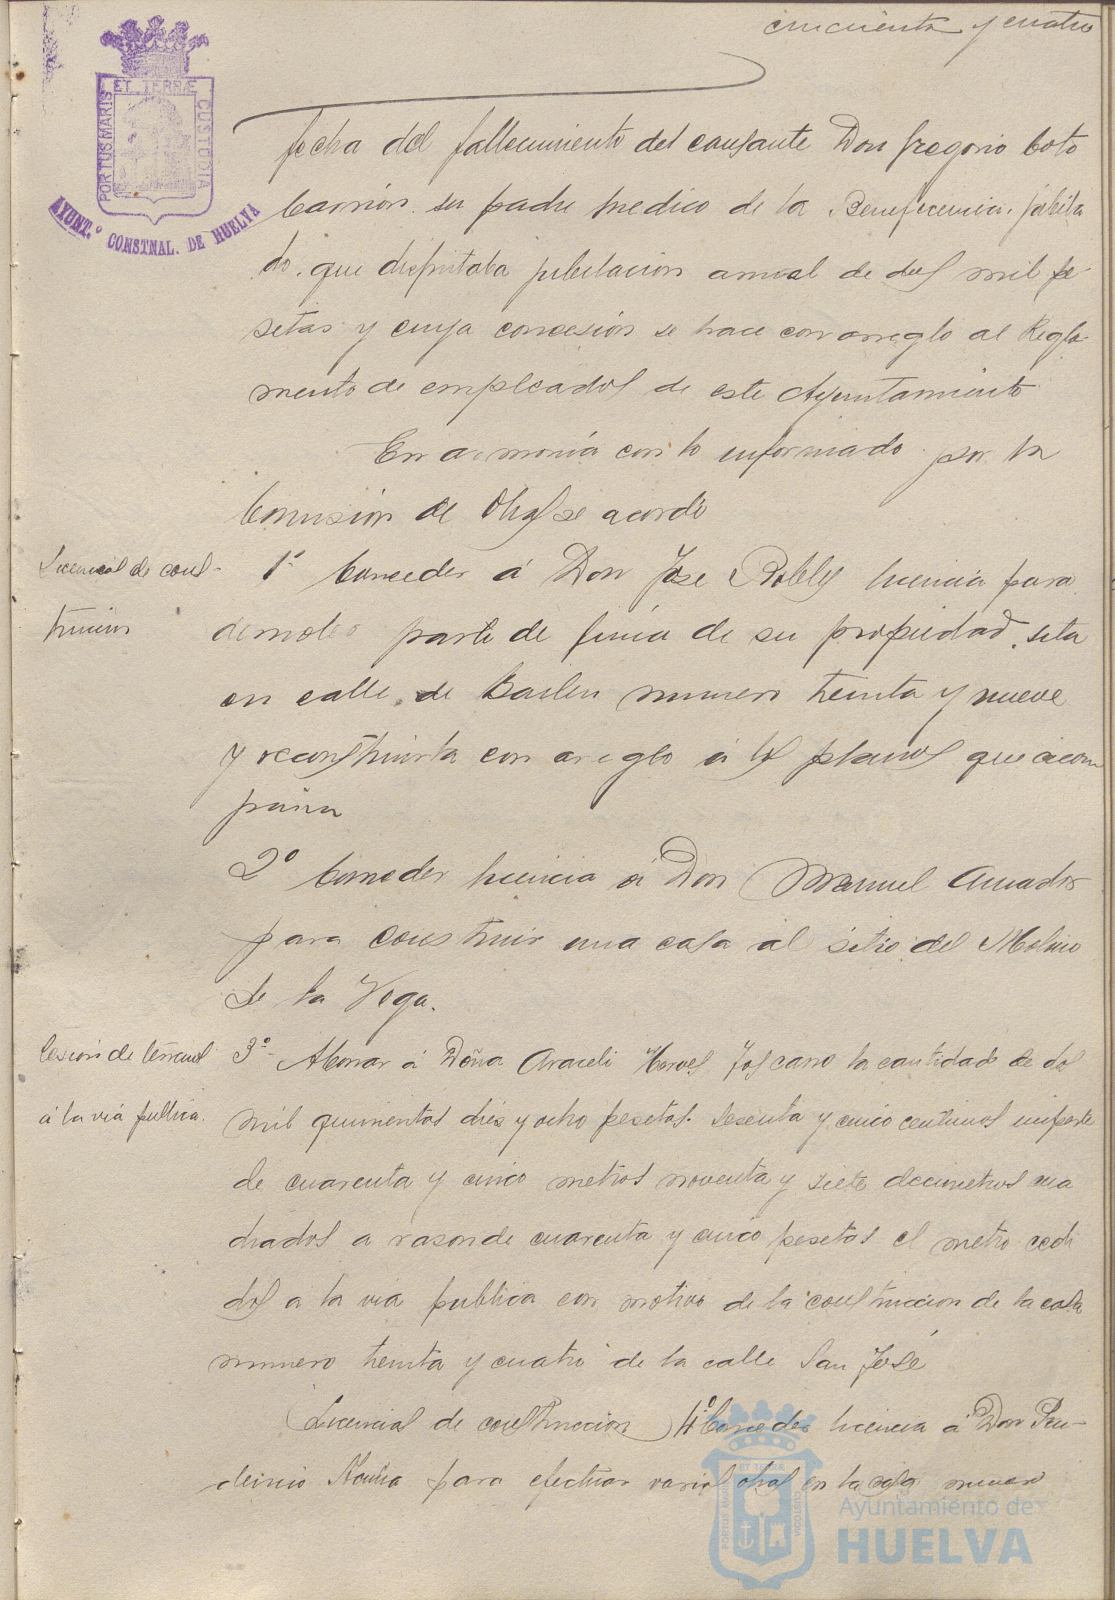 cincuenta y cuatro
PORTUS MARIS ET TERRÆ CUSTODIA
AYUNT.º CONSTNAL. DE HUELVA
fecha del fallecimiento del causante Don Gregorio Coto
Carrión su padre medico de la Beneficencia jubila
do que disfrutaba jubilación anual de dos mil pe
setas y cuya concesión se hace con arreglo al Regla
mento de empleados de este Ayuntamiento
En armonía con lo informado por la
Comisión de Obras se acordó
Licencias de cons-
trucción
1º Conceder á Don José Robles licencia para
demoler parte de finca de su propiedad sita
en calle de Bailen numero treinta y nueve
y reconstruirla con areglo á los planos que acom
paña
2º Conceder licencia á Don Manuel Amador
para construir una casa al sitio del Molino
de la Vega.
Cesión de terrenos
á la vía publica.
3º Abonar á Doña Araceli Toscano la cantidad de dos
mil quinientas dies y ocho pesetas sesenta y cinco centimos importe
de cuarenta y cinco metros noventa y siete decimetros cua
drados a rason de cuarenta y cinco pesetas el metro cedi
dos a la via publica con motivo de la construccion de la casa
numero treinta y cuatro de la calle San José
Licencias de construccion 4º Conceder licencia á Don Pru-
dencio para efectuar varias obras en la casa numero
Ayuntamiento de
HUELVA